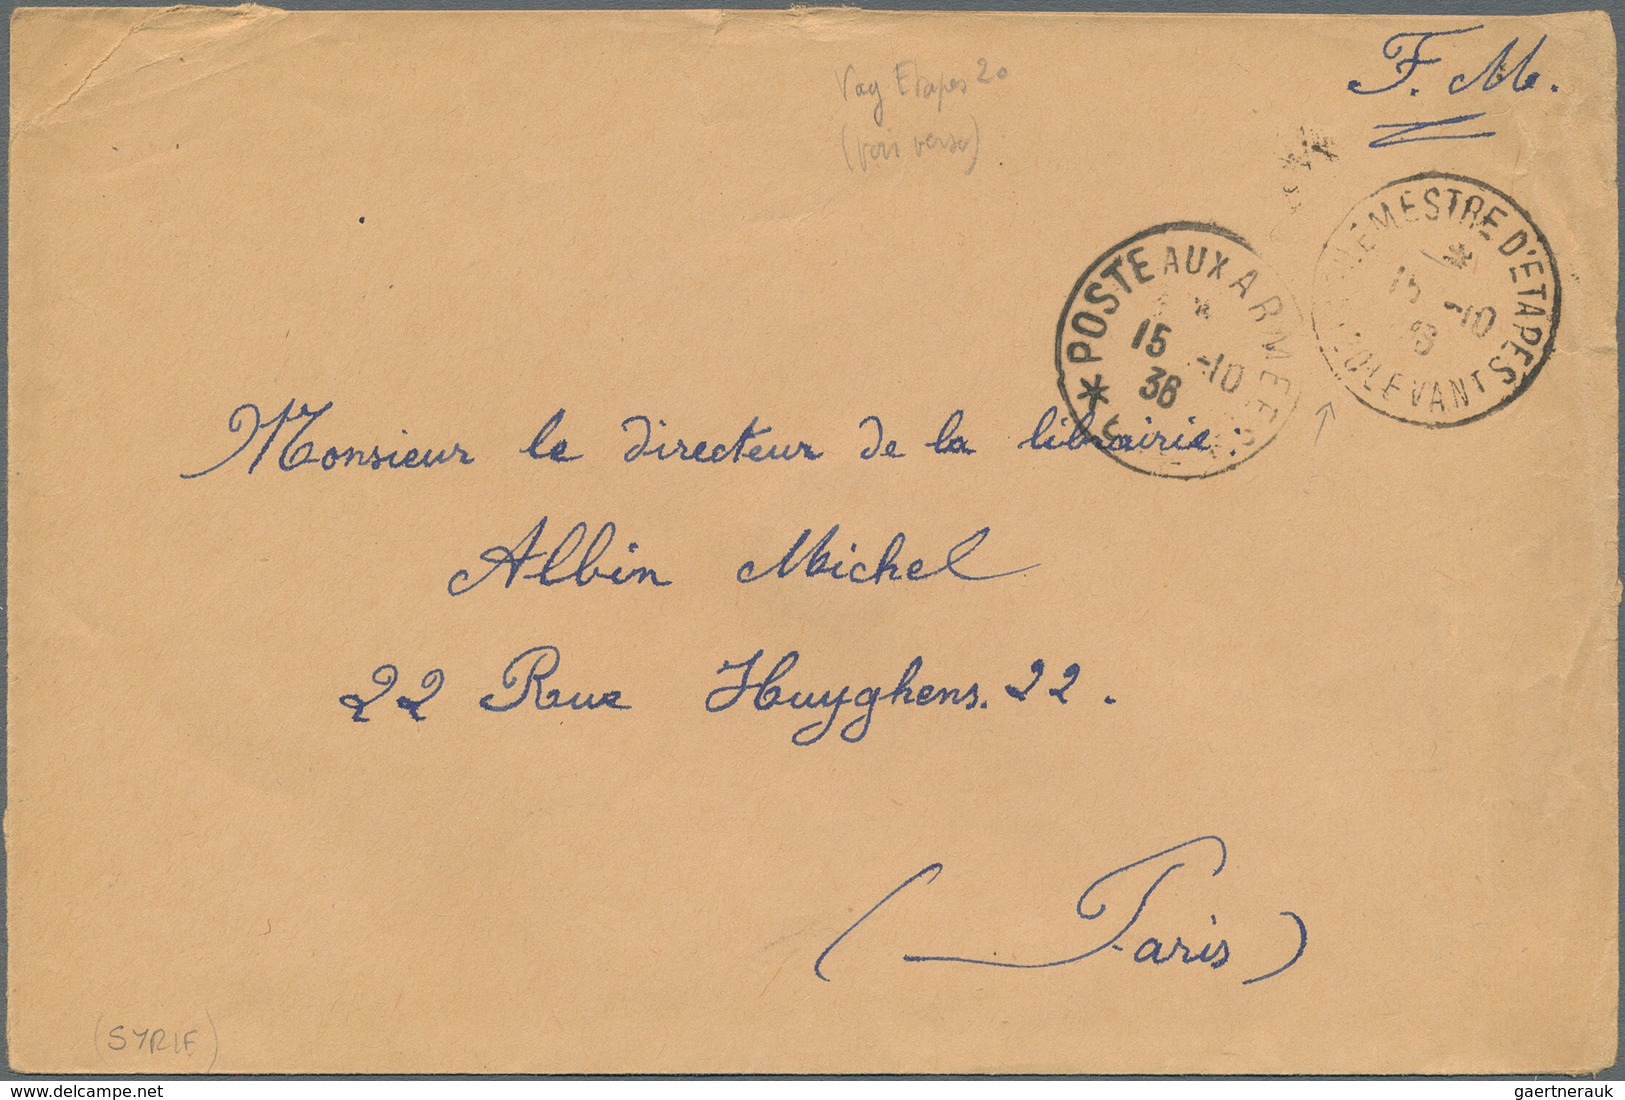 F. M.
Vag Etapes 20
(voir verso)
POSTE AUX ARMEES
15 -10
38
MESTRE D'ETAPES
15 -10
LEVANT
Monsieur le directeur de la librairie:
Albin Michel
22 Rue Huyghens. 22.
(Paris)
(SYRIE)
www.delcampe.net
gaertnerauk